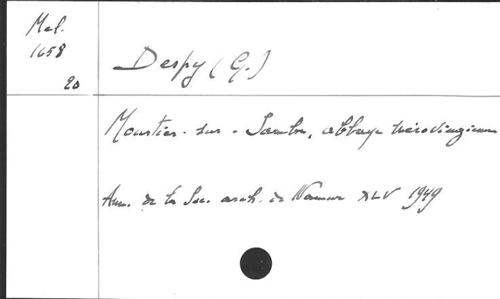 Mel.
1658
20
Despy (G.)
Moustier-sur-Sambre, abbaye mérovingienne
Ann. de la Soc. arch. de Namur XLV 1949